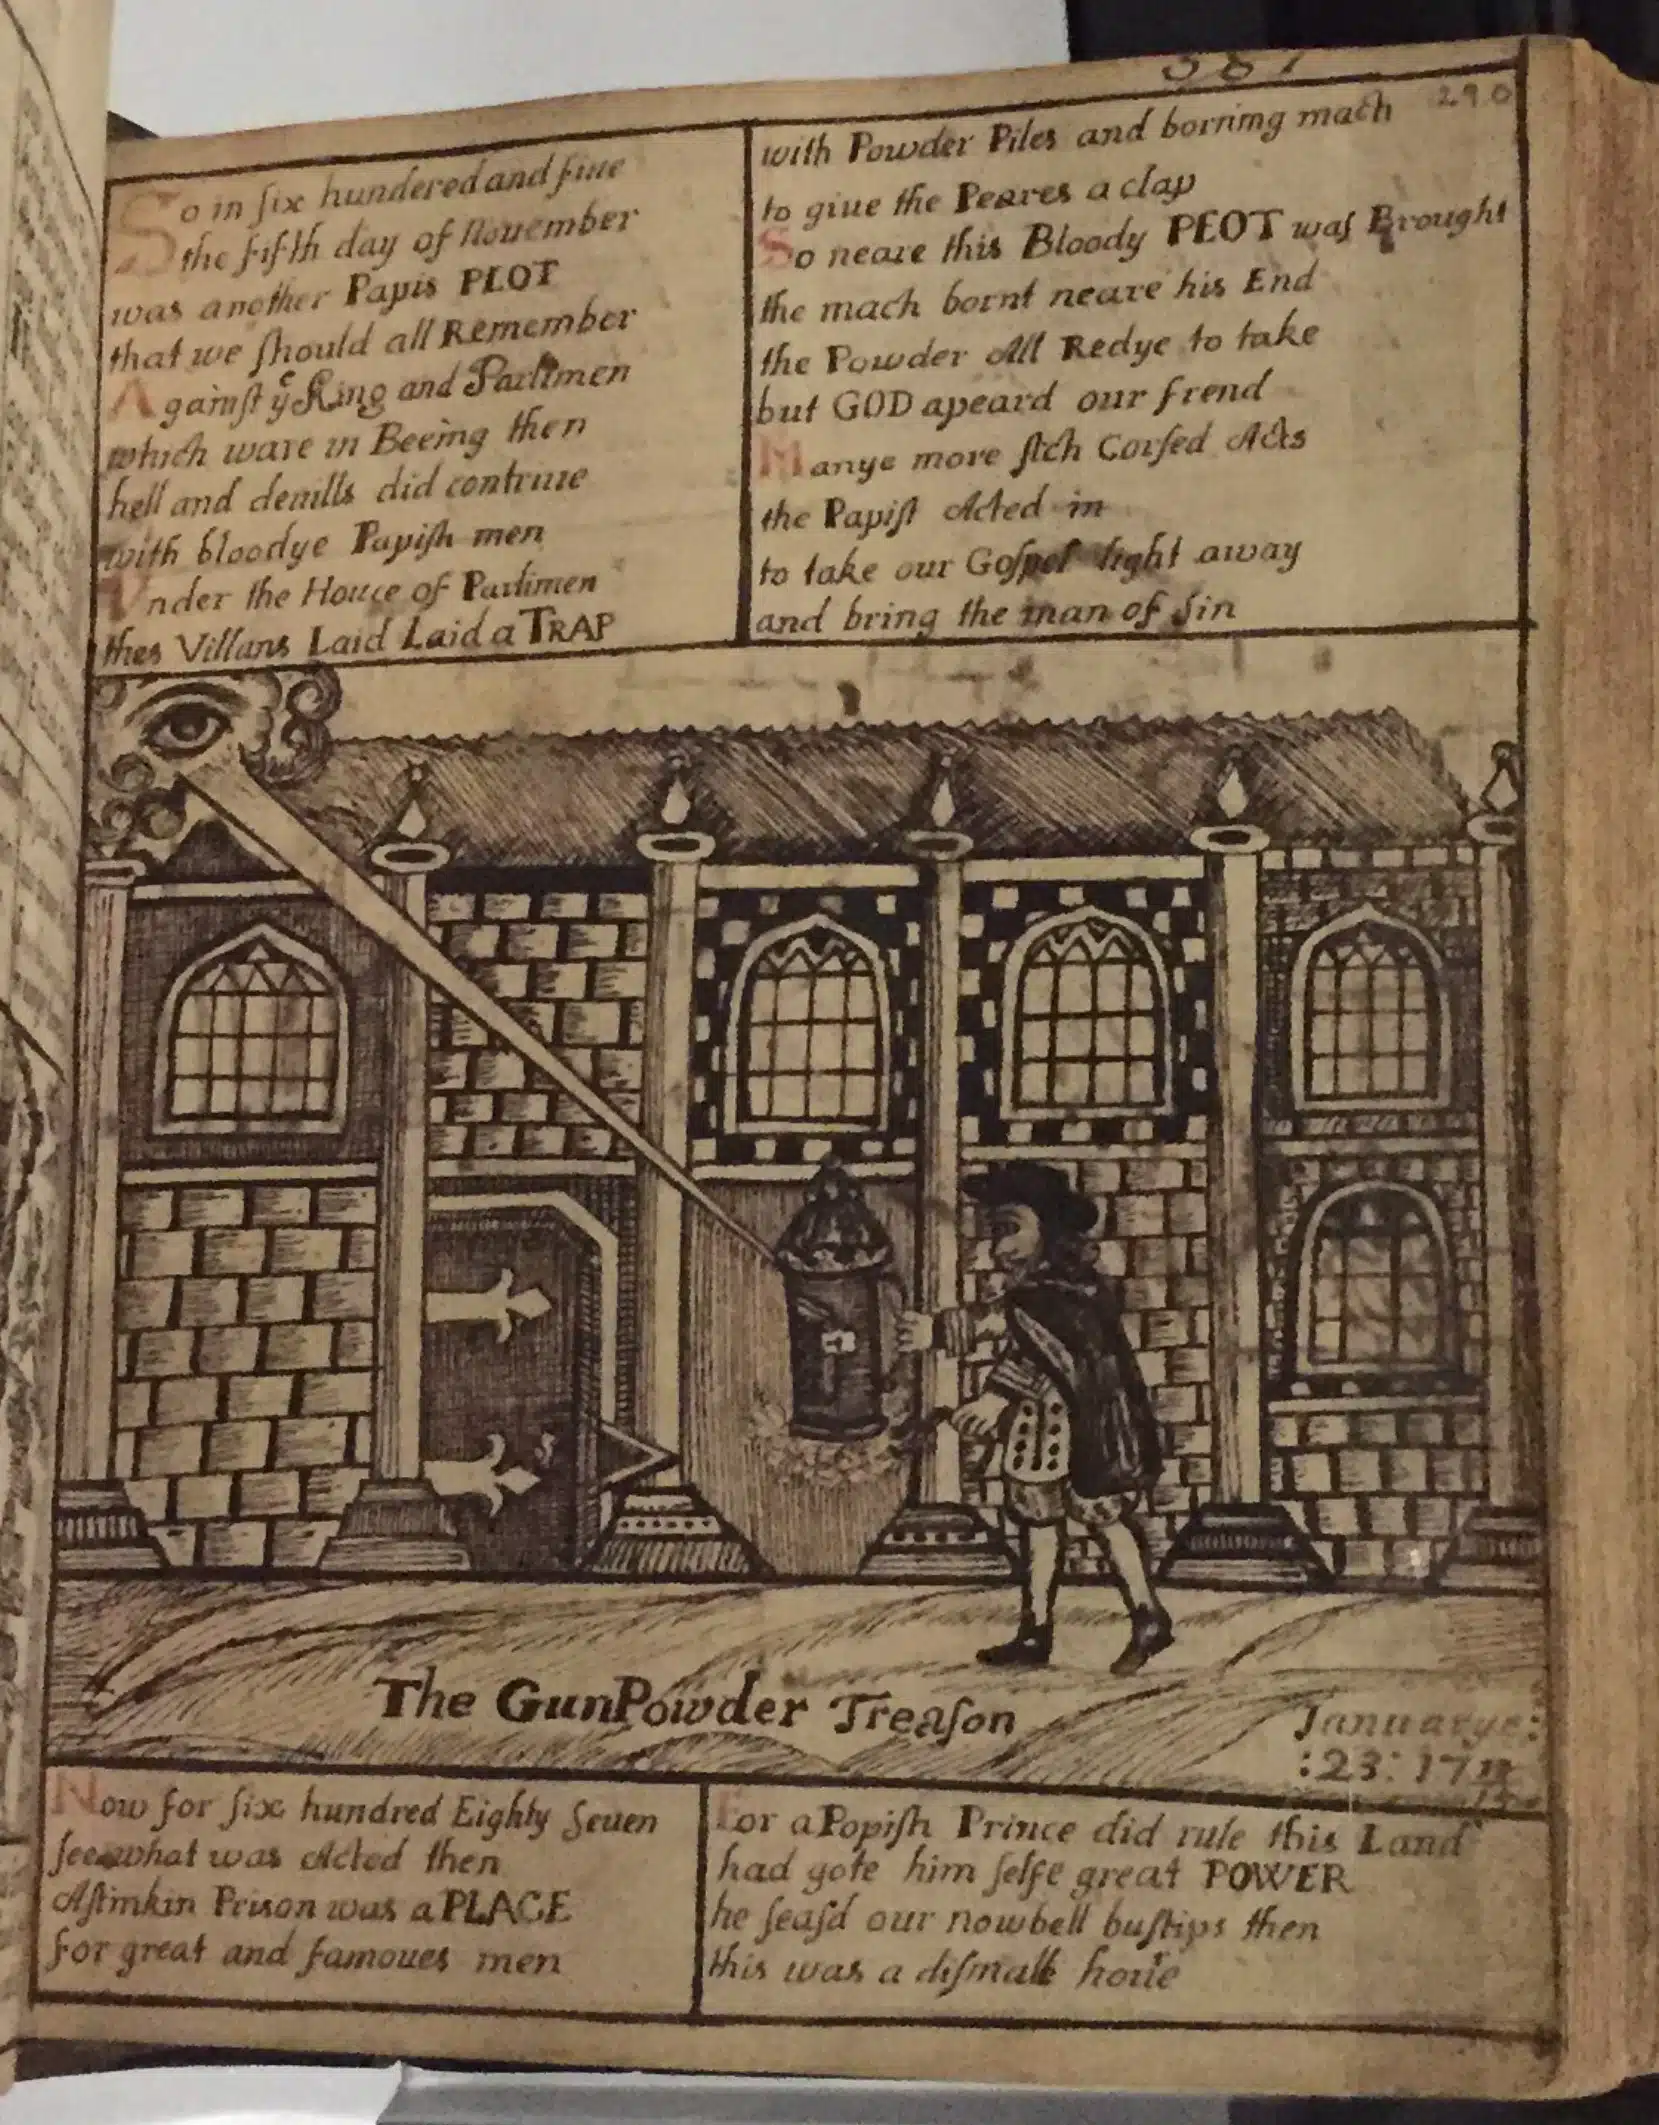 387
290
So in ſix hundered and fiue
the fifth day of November
was another Papis PLOT
that we ſhould all Remember
Againſt yᵉ King and Parlimen
which ware in Beeing then
hell and deuills did contriue
with bloodye Papiſh men
Vnder the Houce of Parlimen
thes Villans Laid Laid a TRAP
with Powder Piles and bornimg mach
to giue the Peares a clap
So neare this Bloody PLOT waſ Brought
the mach bornt neare his End
the Powder All Redye to take
but GOD apeard our frend
Manye more ſich Corſed Acts
the Papiſt Acted in
to take our Goſpel light away
and bring the man of ſin
The GunPowder Treaſon
Januarye:
:23: 17
Now for ſix hundred Eighty Seuen
ſee what was Acted then
Aſtinkin Prison was a PLACE
for great and famoues men
For a Popiſh Prince did rule this Land
had gote him ſelfe great POWER
he ſeaſd our nowbell buſhips then
this was a diſmall houre